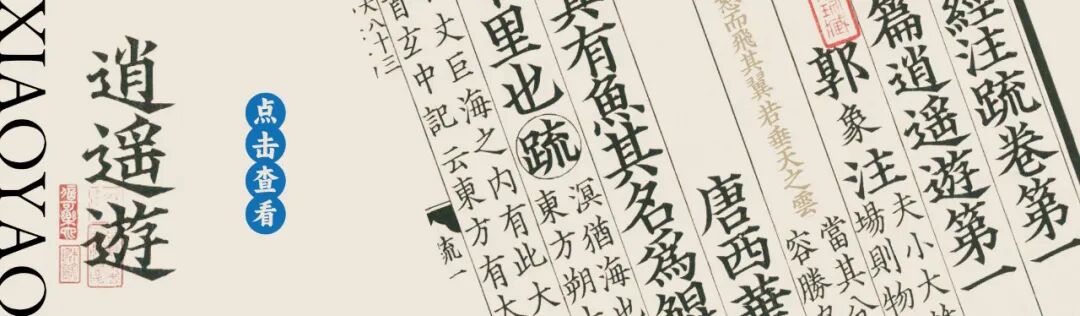 XIAOYAO
逍遙遊
点击查看
經注疏卷第一
篇逍遙遊第一
郭象注
夫小大
場則物
當其分
容勝
唐西華
怒而飛其翼若垂天之雲
其有魚其名為鯤
溟猶海也
東方朔
里也疏
丈巨海之内有此大
玄中記云東方有大
大八十三
疏一